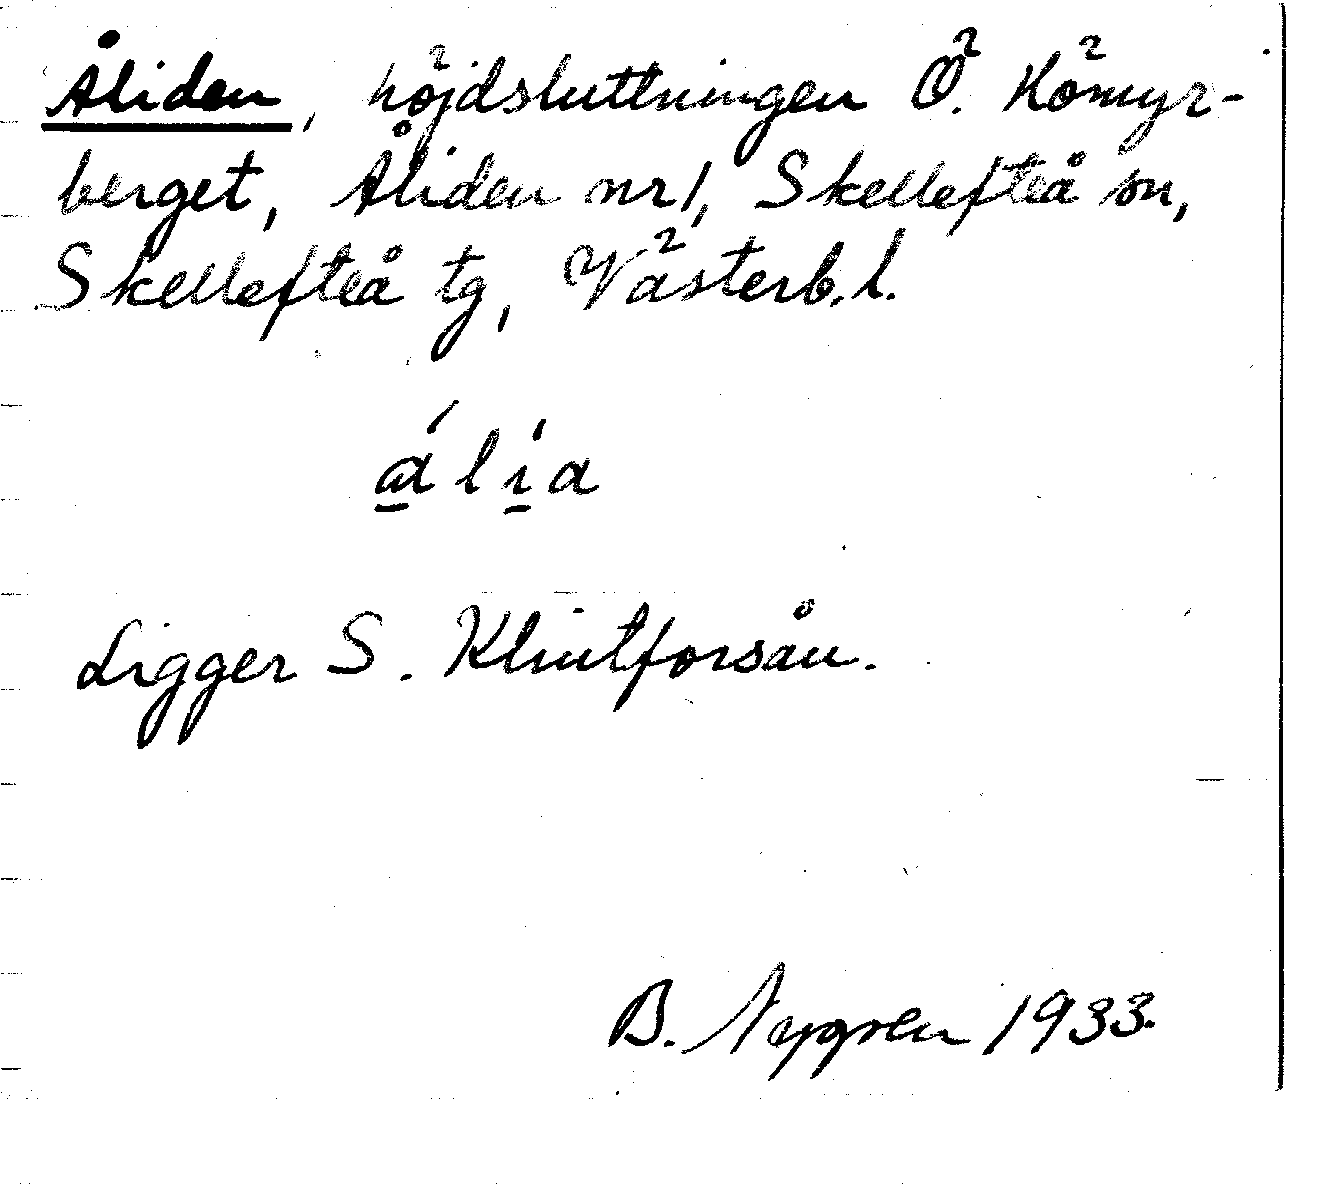 Åliden, höjdsluttningen Ö. Hömyr-
berget, Åliden nr 1, Skellefteå sn,
Skellefteå tg, Västerb. l.
Ligger S. Klintforsån.
B. Nygren 1933.